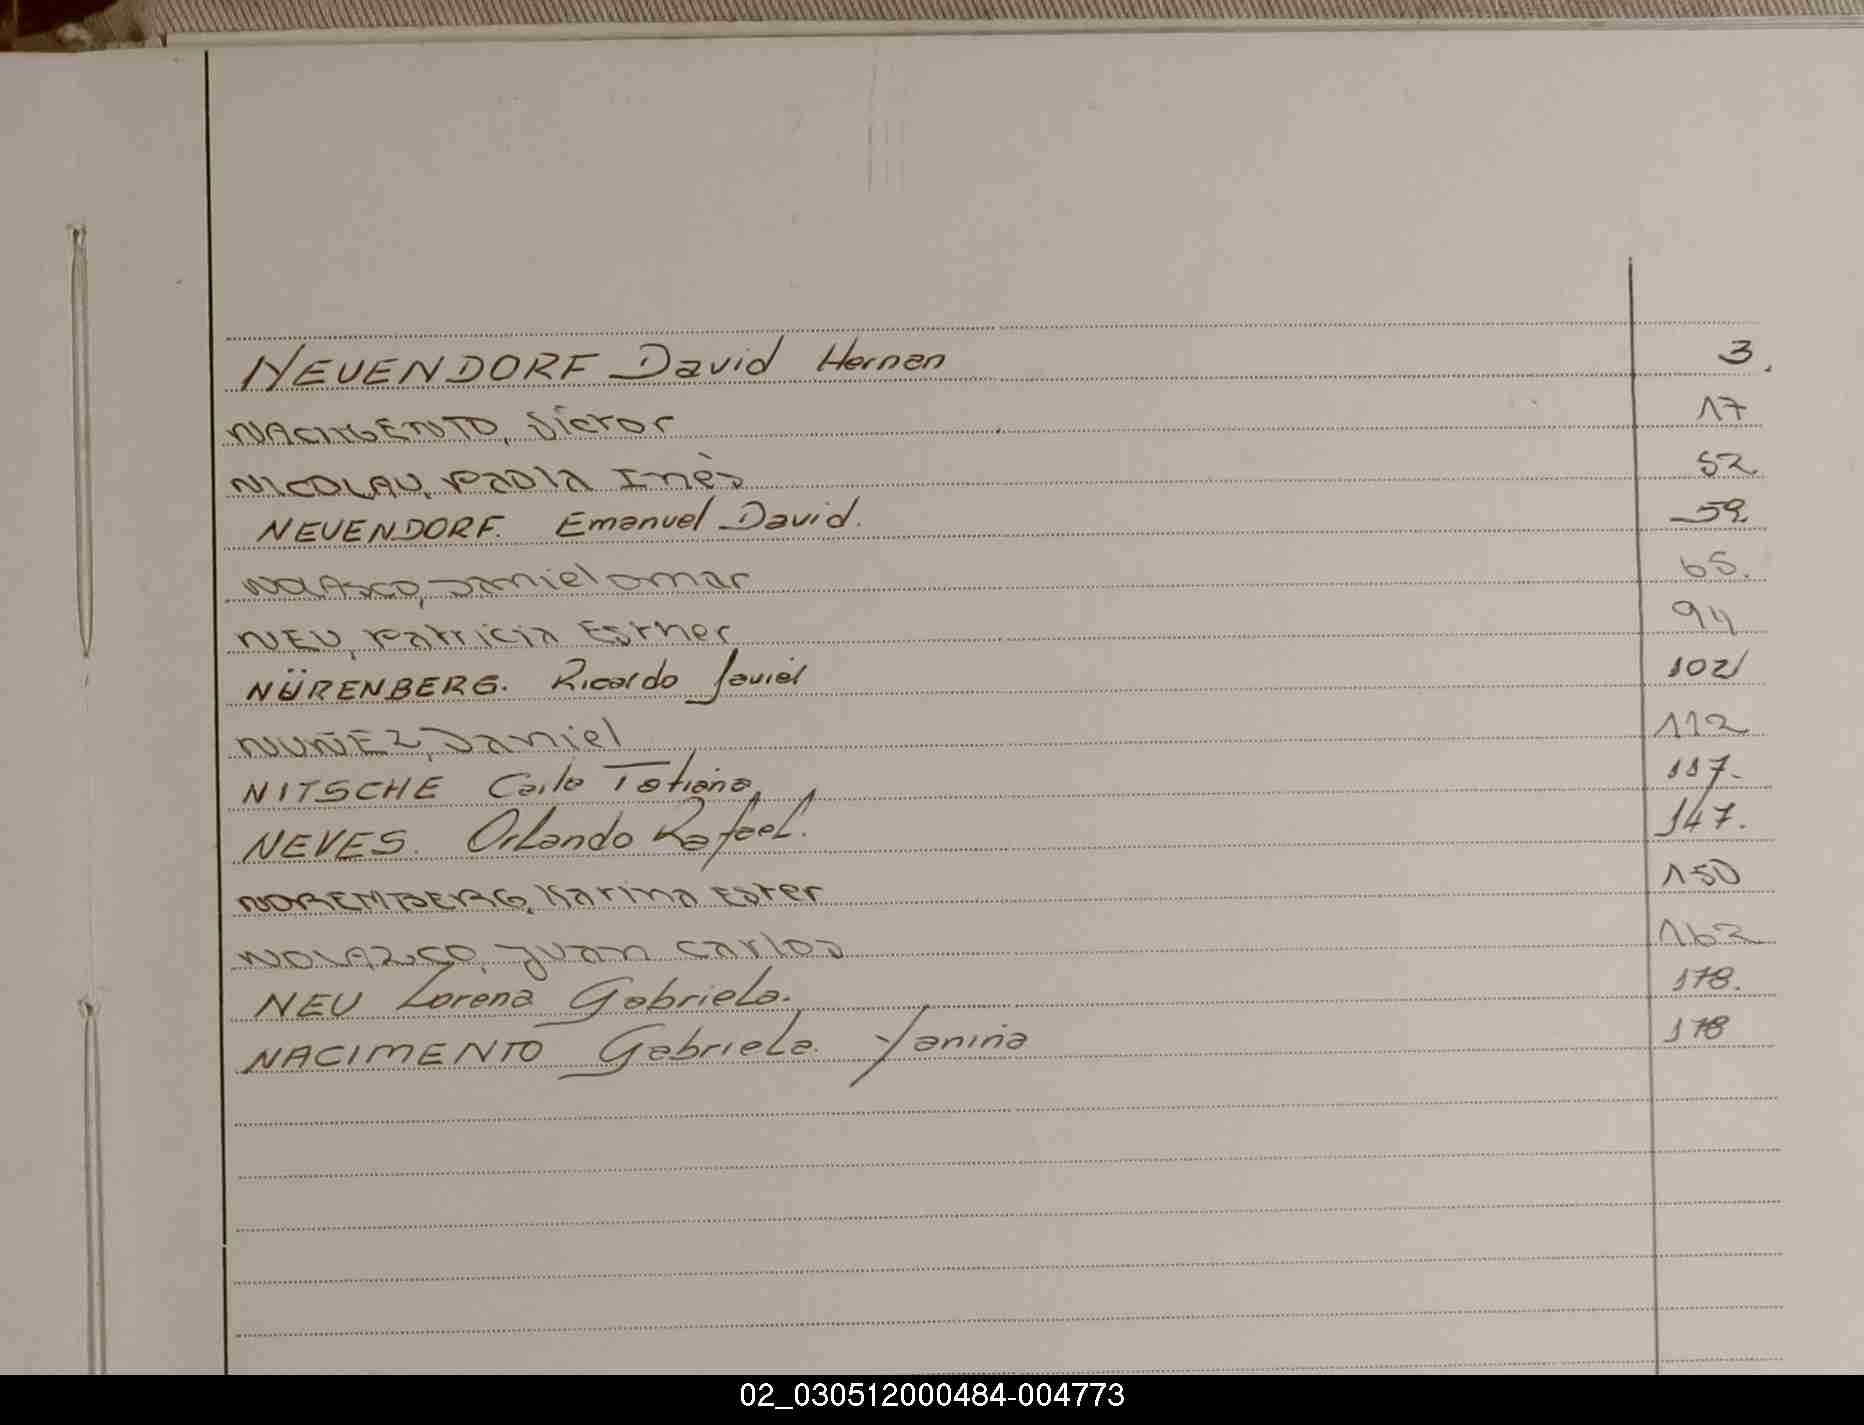 NEUENDORF David Hernan 3.
NACIMENTO, Víctor 17
NICOLAU, Paola Inès 52
NEUENDORF. Emanuel David. 59
NOLASCO, Daniel omar 65.
NEU, Patricia Esther 94
NÜRENBERG. Ricardo Javiel 102
NUÑEZ, Daniel 112
NITSCHE Carla Tatiana 117.
NEVES. Orlando Rafael. 147.
NOREMBERG, Karina Ester 150
NOLAZCO, Juan Carlos 162
NEU Lorena Gabriela. 178.
NACIMENTO Gabriela. Yanina 178
02_030512000484-004773